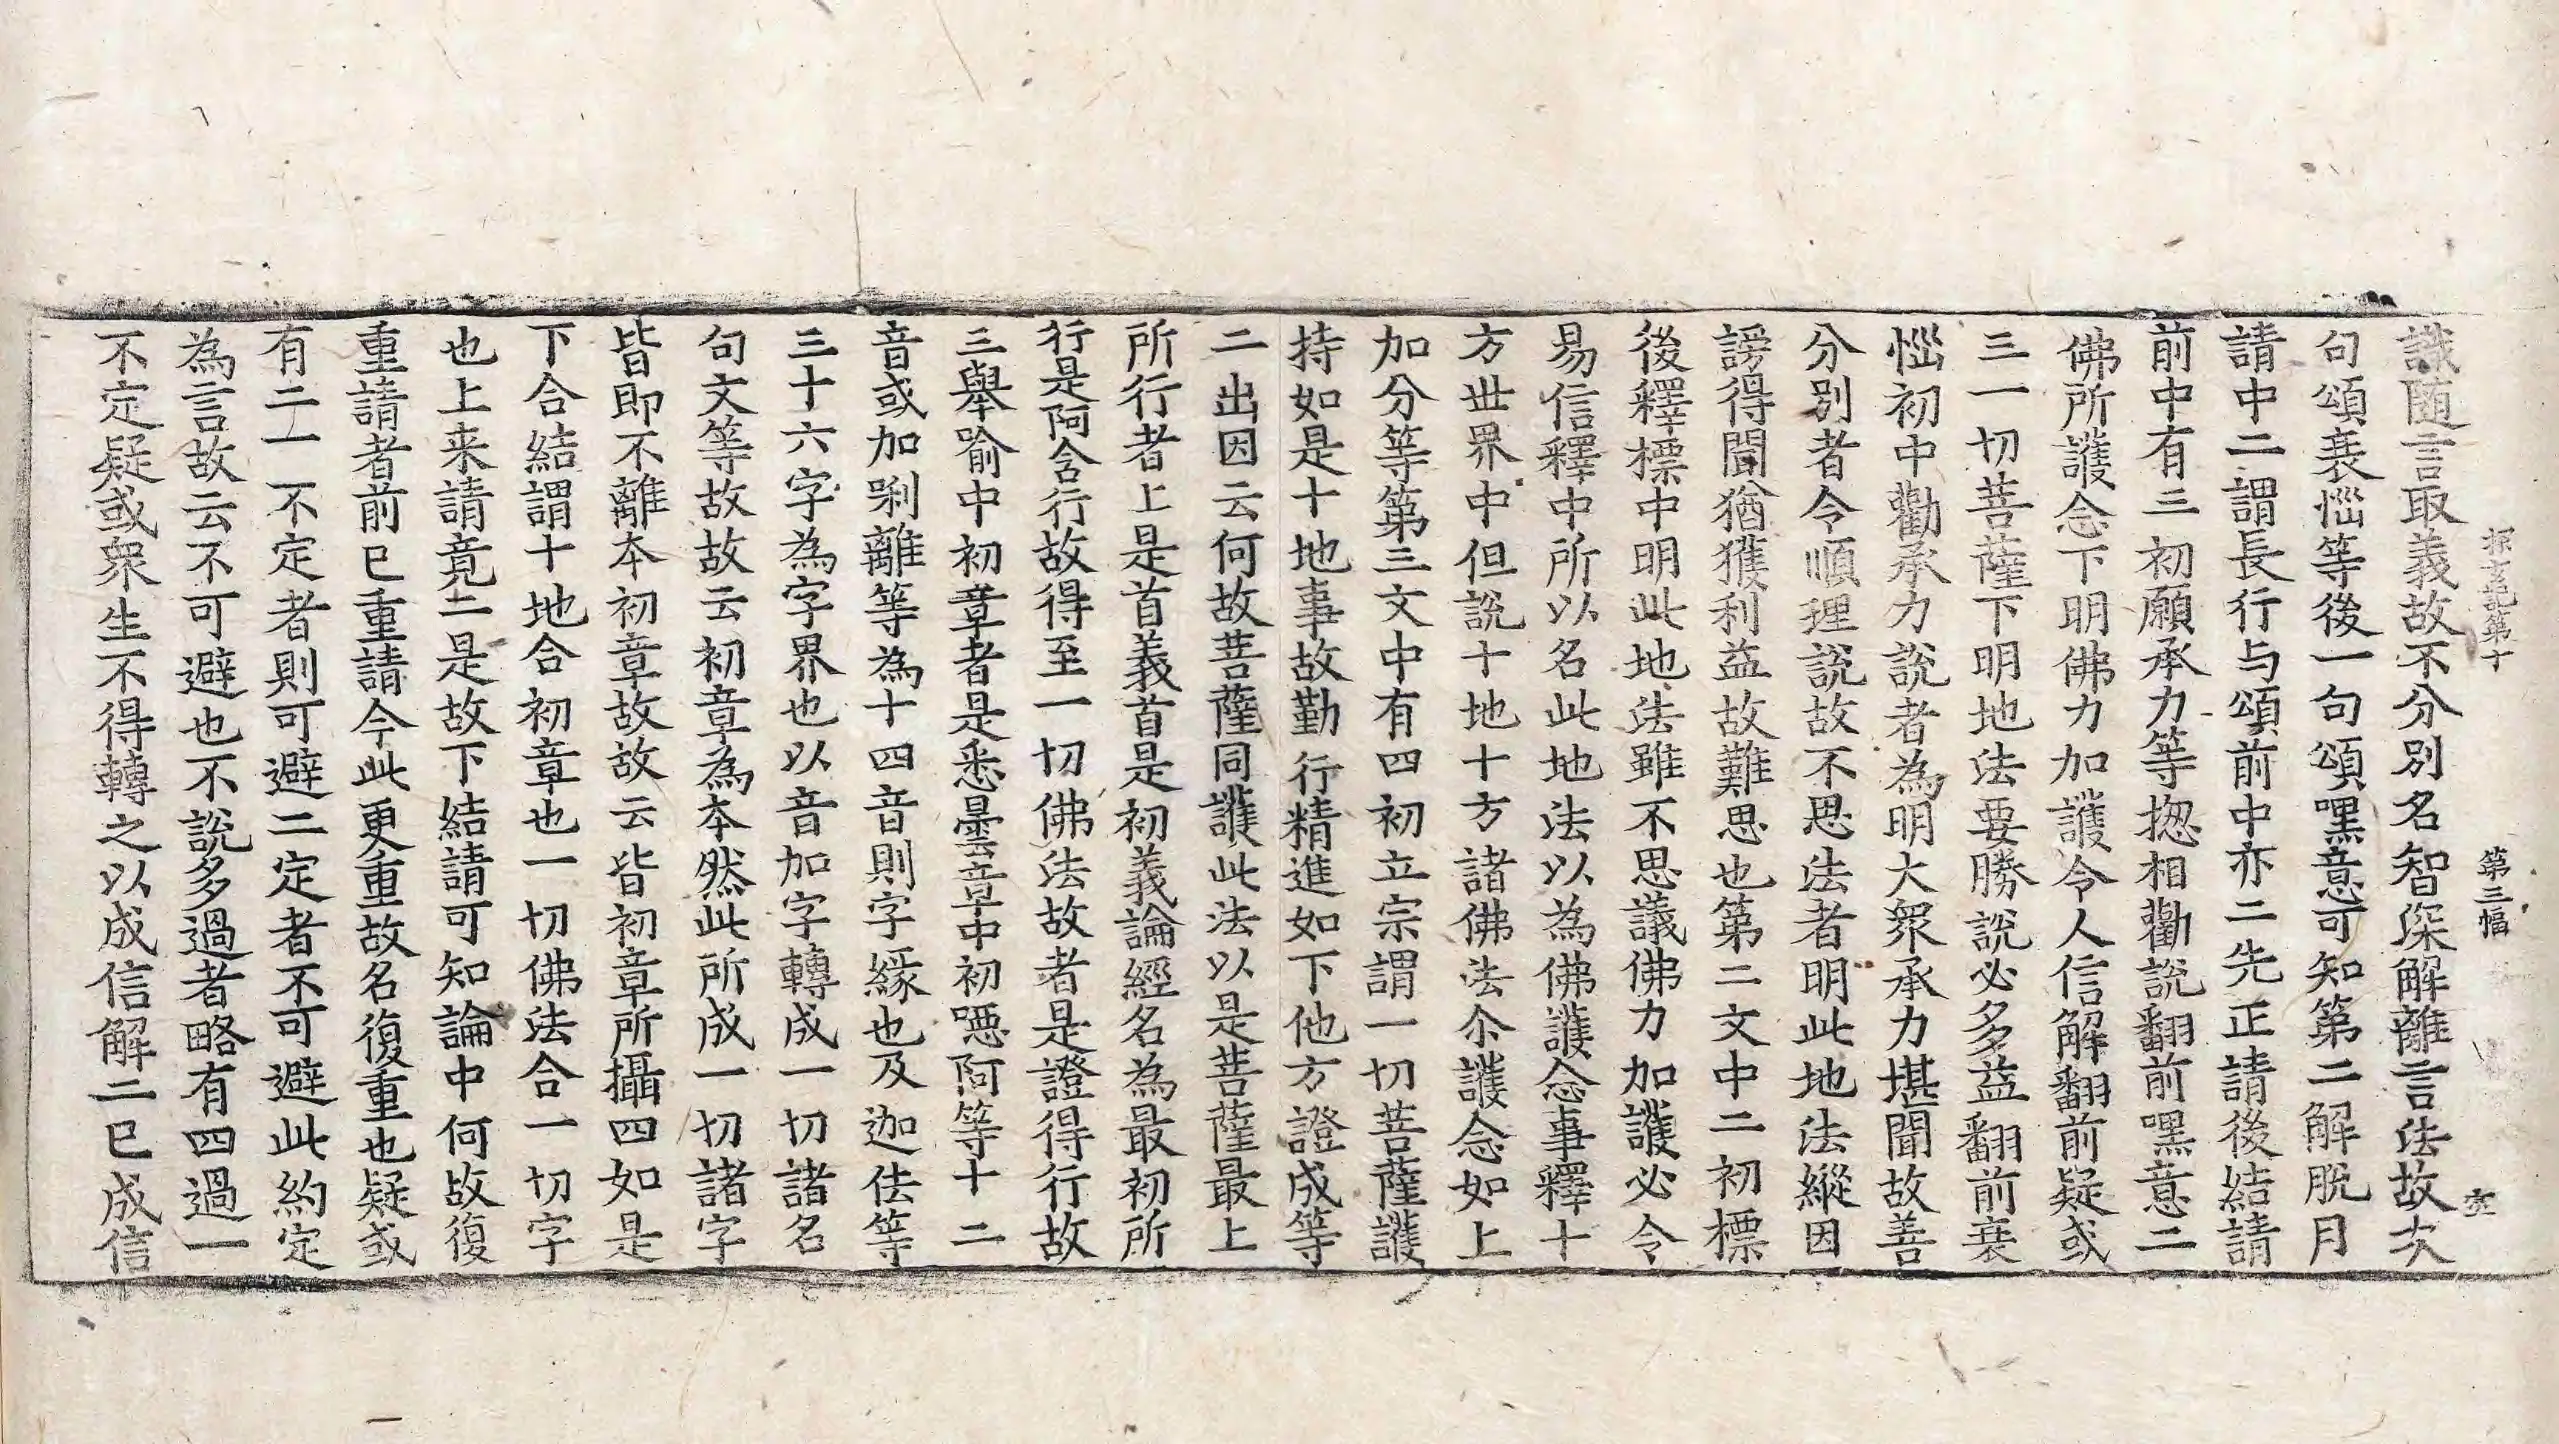 探玄記第十　第三幅　空
識随言取義故不分別名智深解離言法故次
句頌衰惱等後一句頌嘿意可知第二解脫月
請中二謂長行与頌前中亦二先正請後結請
前中有三初願承力等揔相勸說翻前嘿意二
佛所護念下明佛力加護令人信解翻前疑或
三一切菩薩下明地法要勝說必多益翻前衰
惱初中勸承力說者為明大眾承力堪聞故善
分別者令順理說故不思法者明此地法縱因
謗得聞猶獲利益故難思也第二文中二初標
後釋標中明此地法雖不思議佛力加護必令
易信釋中所以名此地法以為佛護念事釋十
方世界中但說十地十方諸佛法尒護念如上
加分等第三文中有四初立宗謂一切菩薩護
持如是十地事故勤行精進如下他方證成等
二出因云何故菩薩同護此法以是菩薩最上
所行者上是首義首是初義論經名為最初所
行是阿含行故得至一切佛法故者是證得行故
三舉喻中初章者是悉曇章中初噁阿等十二
音或加唎離等為十四音則字緣也及迦佉等
三十六字為字界也以音加字轉成一切諸名
句文等故故云初章為本然此所成一切諸字
皆即不離本初章故故云皆初章所攝四如是
下合結謂十地合初章也一切佛法合一切字
也上来請竟二是故下結請可知論中何故復
重請者前已重請今此更重故名復重也疑或
有二一不定者則可避二定者不可避此約定
為言故云不可避也不說多過者略有四過一
不定疑或衆生不得轉之以成信解二已成信